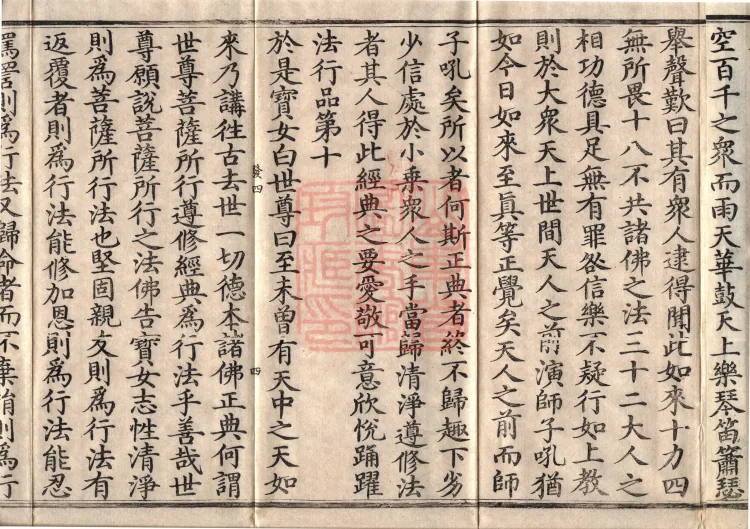 空百千之衆而雨天華鼓天上樂琴笛簫瑟
舉聲歎曰其有衆人逮得聞此如來十力四
無所畏十八不共諸佛之法三十二大人之
相功德具足無有罪咎信樂不疑行如上教
則於大衆天上世間天人之前演師子吼猶
如今日如來至眞等正覺矣天人之前而師
子吼矣所以者何斯正典者終不歸趣下劣
少信處於小乗衆人之手當歸清淨遵修法
者其人得此經典之要愛敬可意欣恱踊躍
法行品第十
於是寳女白世尊曰至未曾有天中之天如
發四
四
來乃講徃古去世一切德本諸佛正典何謂
世尊菩薩所行遵修經典爲行法乎善哉世
尊願說菩薩所行之法佛告寳女志性清淨
則爲菩薩所行法也堅固親友則爲行法有
返覆者則爲行法能修加恩則爲行法能忍
罵詈則爲行法又歸命者而不棄捐則爲行